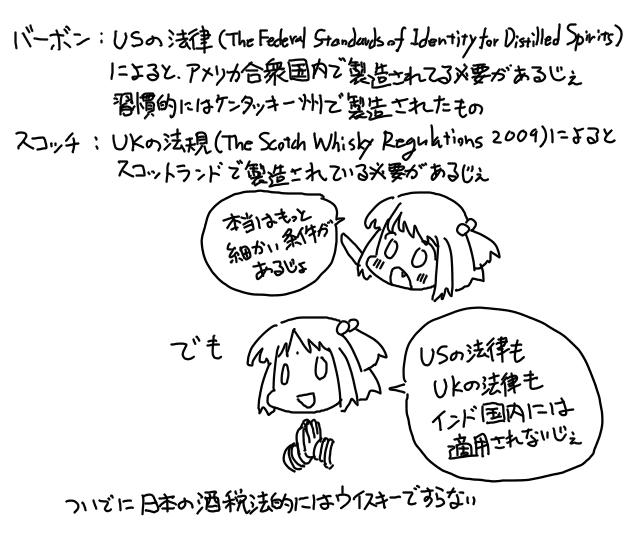 バーボン：USの法律(The Federal Standards of Identity for Distilled Spirits)
によると、アメリカ合衆国内で製造されてる必要があるじぇ
習慣的にはケンタッキー州で製造されたもの
スコッチ：UKの法規(The Scotch Whisky Regulations 2009)によると
スコットランドで製造されている必要があるじぇ
本当はもっと
細かい条件が
あるじょ
でも
USの法律も
UKの法律も
インド国内には
適用されないじぇ
ついでに日本の酒税法的にはウイスキーですらない